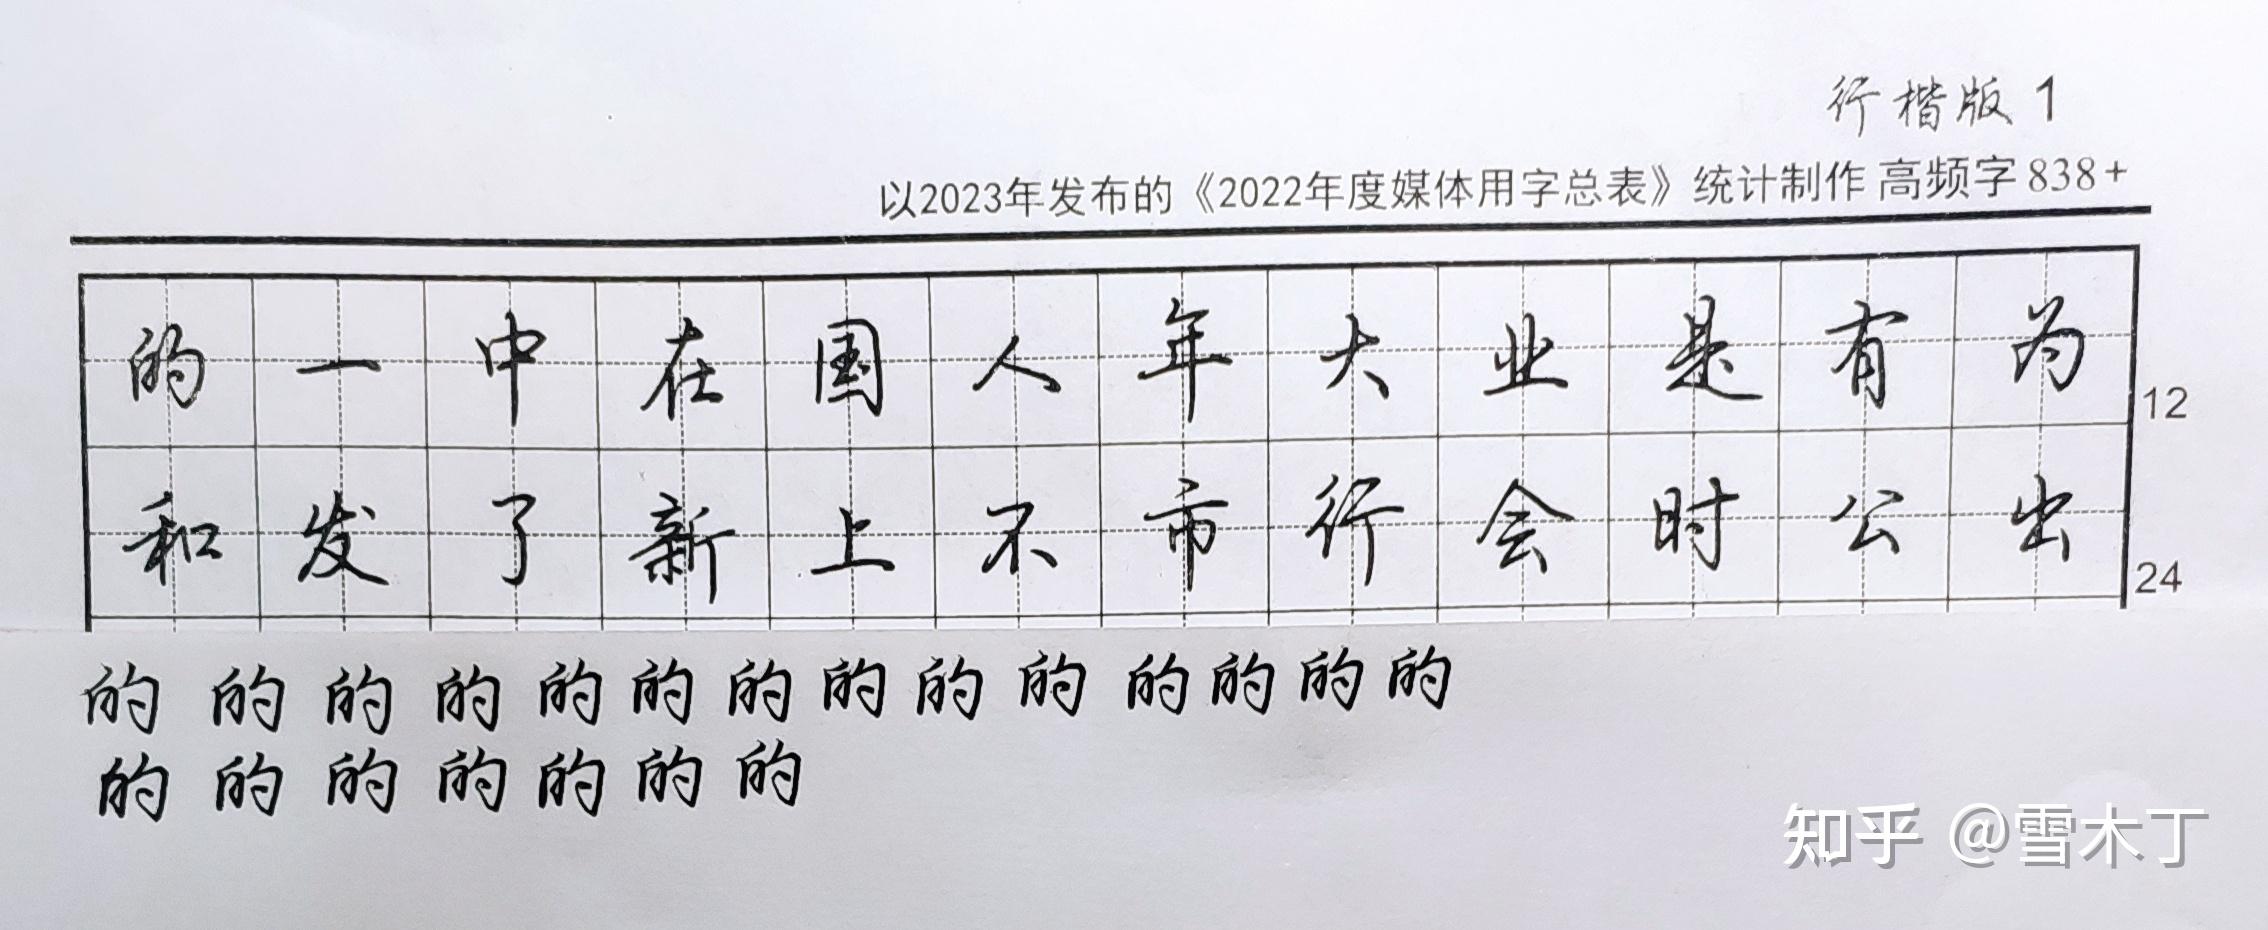 行楷版 1
以2023年发布的《2022年度媒体用字总表》统计制作 高频字 838+
的 一 中 在 国 人 年 大 业 是 有 为 12
和 发 了 新 上 不 市 行 会 时 公 出 24
的 的 的 的 的 的 的 的 的 的 的 的 的 的
的 的 的 的 的 的 的
知乎 @雪木丁